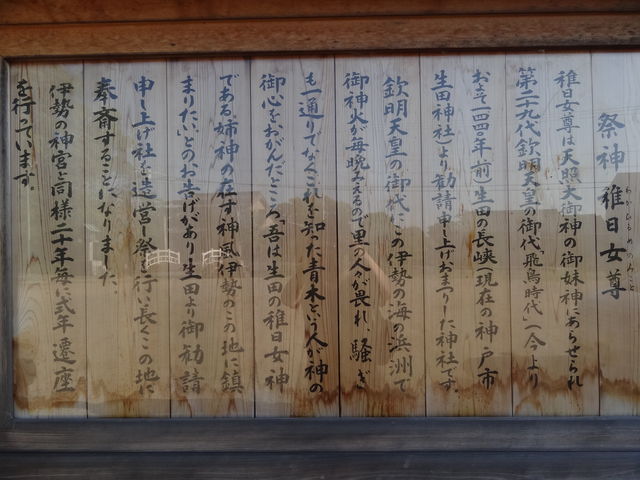 祭神 稚日女尊
わかひるめのみこと
稚日女尊は天照大御神の御妹神にあらせられ
第二十九代欽明天皇の御代飛鳥時代(今より
およそ一四四〇年前)生田の長峡(現在の神戸市
生田神社)より勧請申し上げおまつりした神社です。
欽明天皇の御代にこの伊勢の海の浜洲で
御神火が毎晩みえるので里の人々が畏れ、騒ぎ
も一通りでなくこれを知った青木という人が神の
御心をおがんだところ「吾は生田の稚日女神
である、姉神の在す神風伊勢のこの地に鎮
まりたい」とのお告げがあり生田より御勧請
申し上げ社を造営し祭を行い長くこの地に
奉斎することになりました。
伊勢の神宮と同様二十年毎に式年遷座
を行っています。